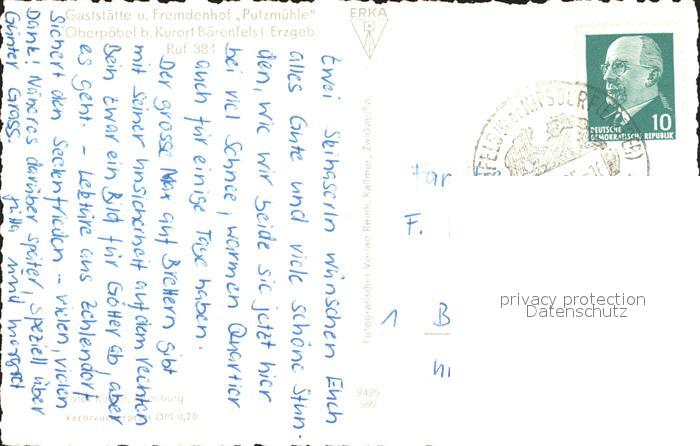 Gaststätte u. Fremdenhof „Putzmühle"
Oberpöbel b. Kurort Bärenfels i. Erzgeb.
Ruf 384
ERKA
Zwei Skihaserln wünschen Euch
alles Gute und viele schöne Stun-
den, wie wir beide sie jetzt hier
bei viel Schnee, warmen Quartier
auch für einige Tage haben.
Der grosse Max auf Brettern gibt
mit seiner Unsicherheit auf dem rechten
Bein zwar ein Bild für Götter ab aber
es geht. - Lektüre aus Zehlendorf
sichert den Seelenfrieden - vielen, vielen
Dank! Näheres darüber später, speziell über
Günter Grass. und Margret
Verbraucherpreis DM 0,20
Fotografischer Verlag Reinh. Kallmer, Zwickau/Sa.
9495
592
DEUTSCHE
DEMOKRATISCHE REPUBLIK
10
F.
1 B
privacy protection
Datenschutz